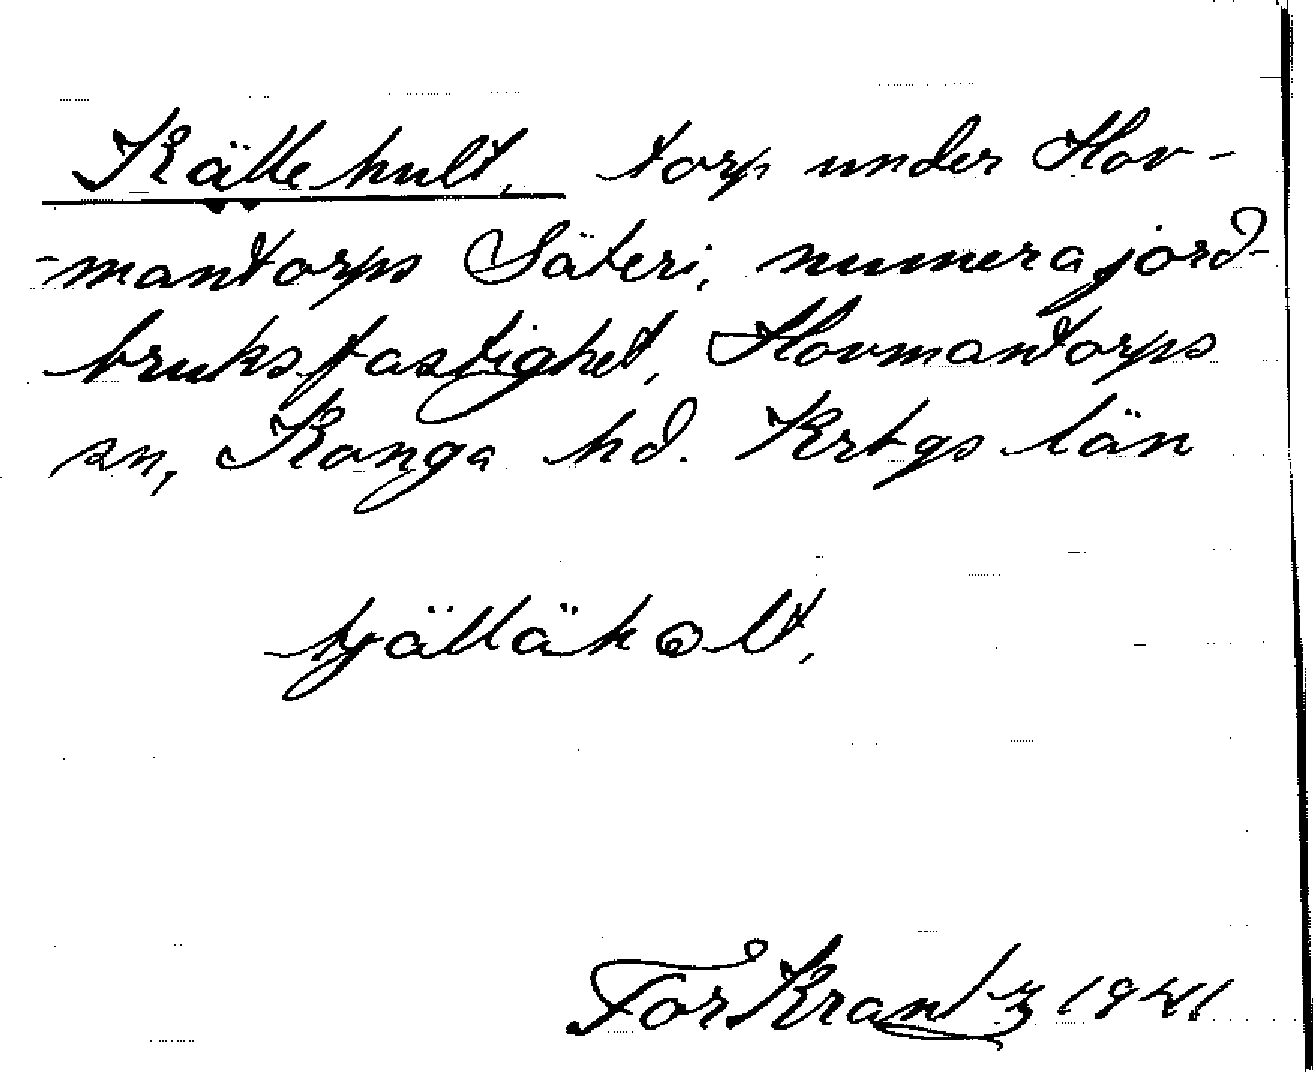 Källehult, torp under Hov-
-mantorps Säteri, numera jord-
bruksfastighet, Hovmantorps
sn, Konga hd. Krbgs län
tjälläholt,
Tor Krantz 1941